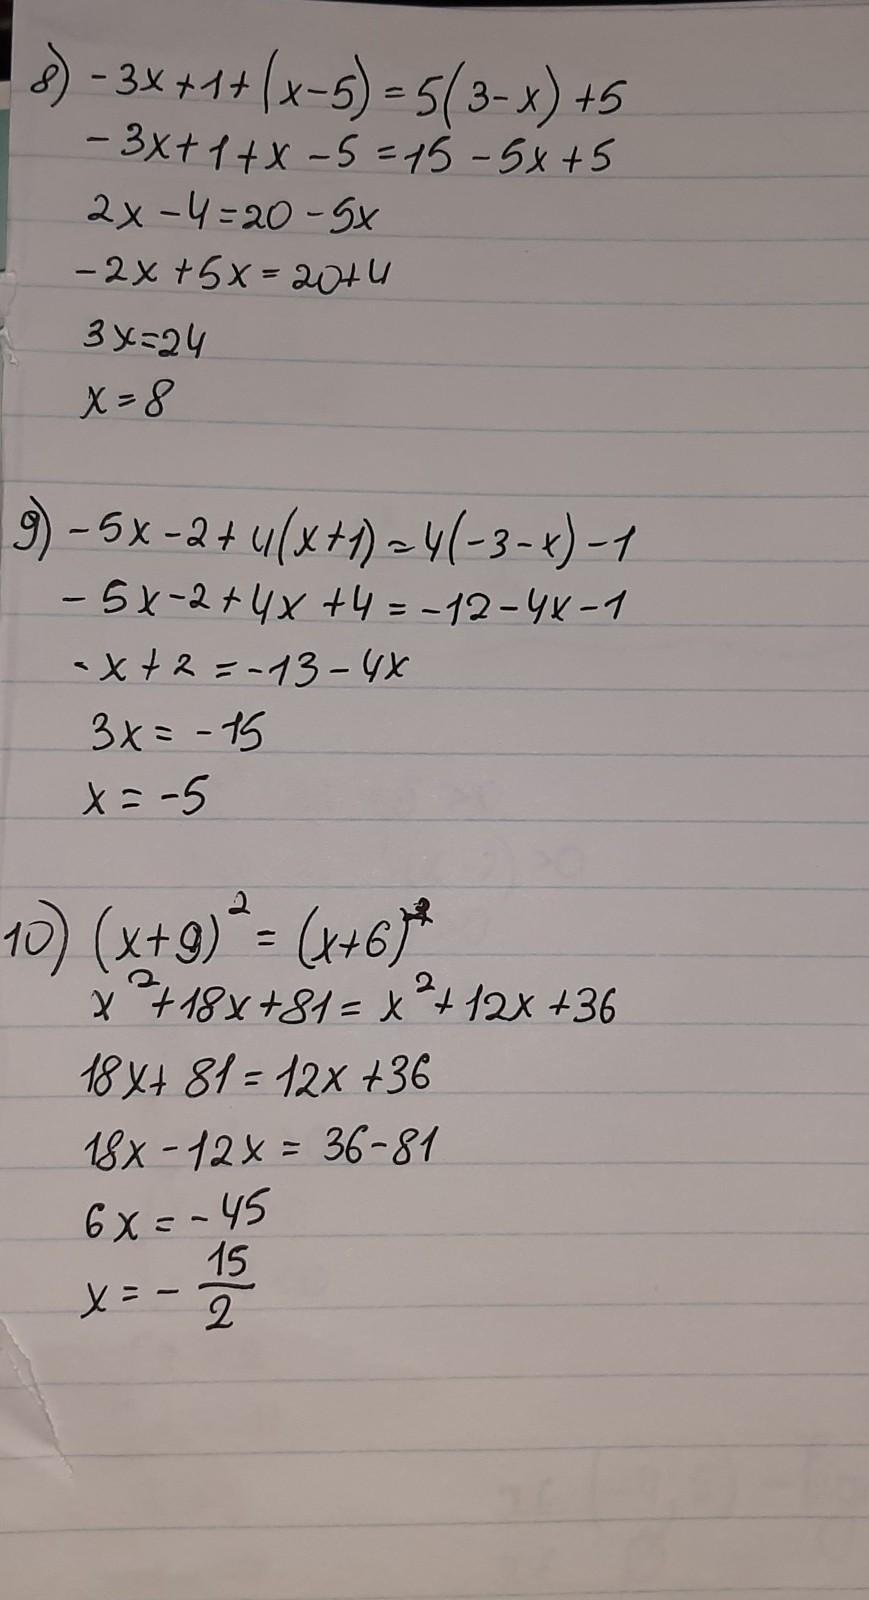 8) -3x+1+(x-5)=5(3-x)+5
-3x+1+x-5=15-5x+5
2x-4=20-5x
-2x+5x=20+4
3x=24
x=8
9) -5x-2+4(x+1)=4(-3-x)-1
-5x-2+4x+4=-12-4x-1
-x+2=-13-4x
3x=-15
x=-5
10) (x+9)²=(x+6)²
x²+18x+81=x²+12x+36
18x+81=12x+36
18x-12x=36-81
6x=-45
x=-15/2